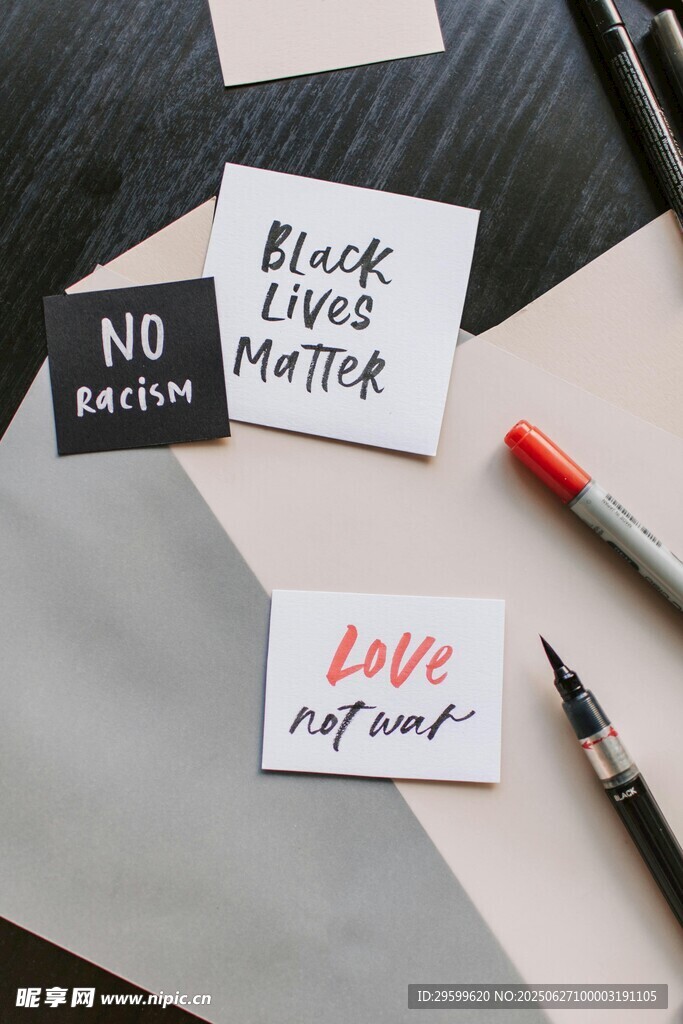 Black
Lives
Matter
NO
Racism
Love
not war
BLACK
昵享网 www.nipic.cn
ID:29599620 NO:20250627100003191105